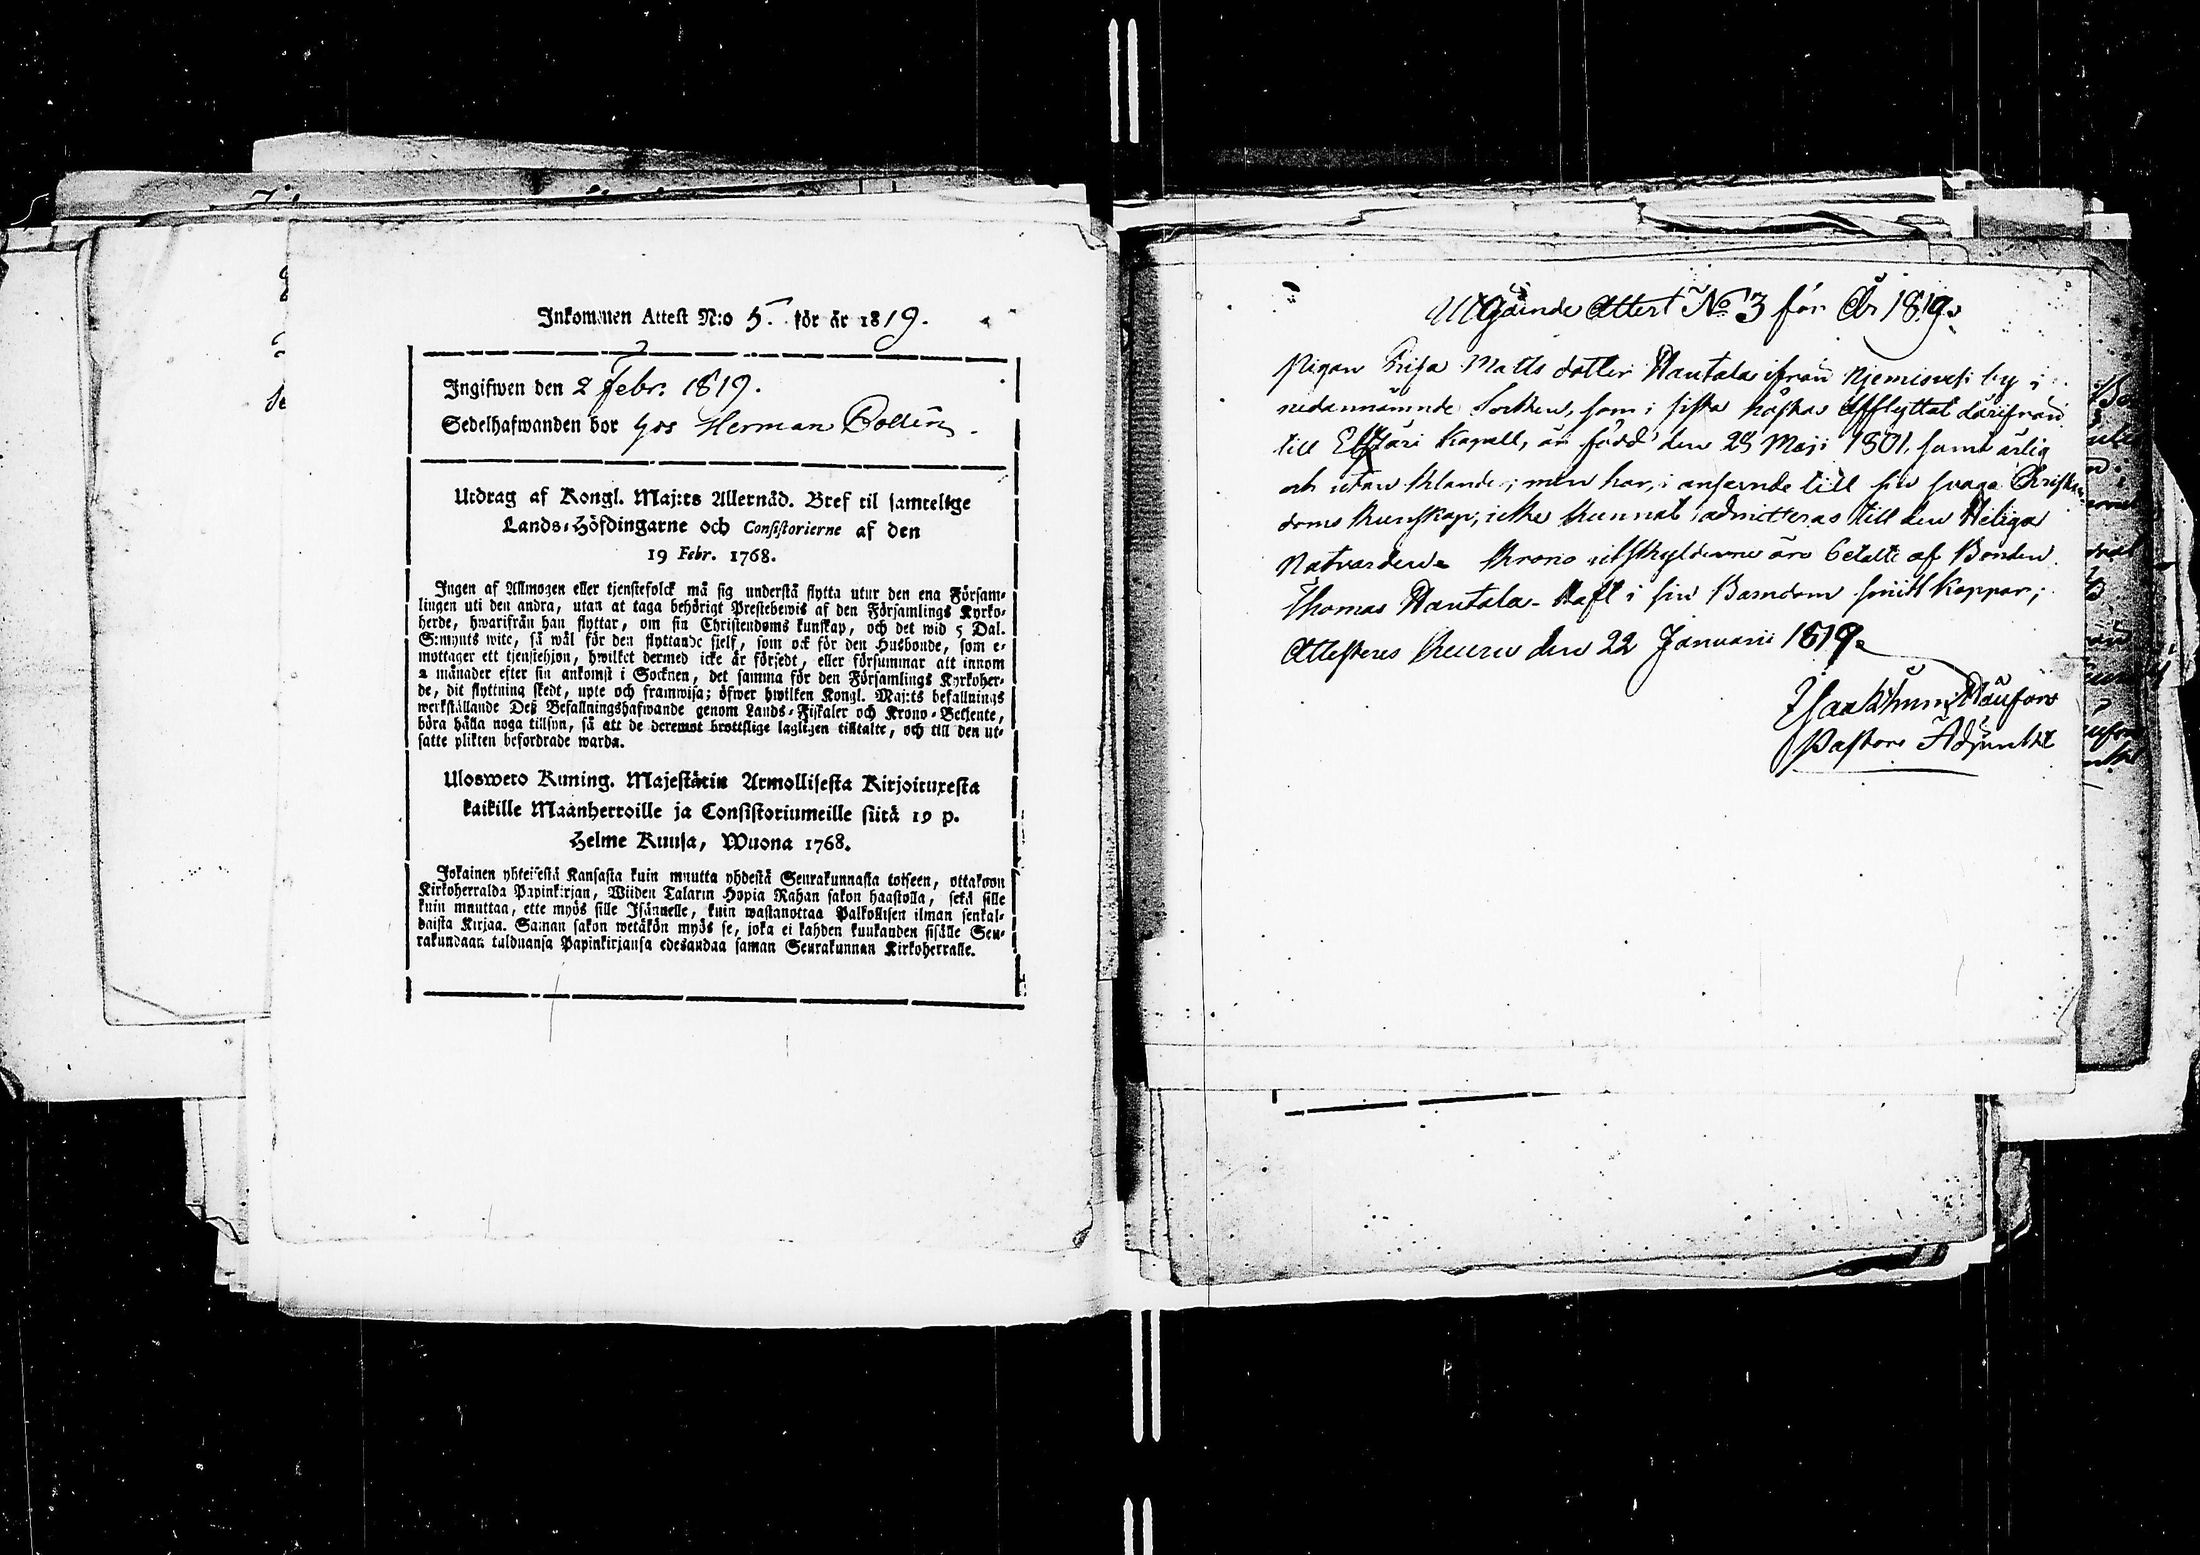 Inkommen Attest N:o 5. för år 1819.
Ingifwen den 2 Febr. 1819.
Sedelhafwanden bor hos Herman Bollin.
Utdrag af Kongl. Maj:ts Allernåd. Bref til samtelige
Lands-Höfdingarne och Consistorierne af den
19 Febr. 1768.
Ingen af Allmogen eller tjenstefolck må sig understå flytta utur den ena Församlingen
lingen uti den andra, utan at taga behörigt Prestebewis af den Församlings Kyrko-
herde, hwarifrån han flyttar, om sin Christendoms kunskap, och det wid 5 Dal.
S:mynts wite, så wäl för den flyttande sjelf, som ock för den Husbonde, som e-
mottager ett tjenstehjon, hwilket dermed icke är försedt, eller försummar att innom
2 månader efter sin ankomst i Socknen, det samma för den Församlings Kyrkoher-
de, dit flyttning skedt, upte och framwisa; öfwer hwilken Kongl. Maj:ts befallnings
werkställande Deß Befallningshafwande genom Lands-Fiskaler och Krono-Betjente,
böra hålla noga tillsyn, så att de deremot brottslige lagligen tilltalte, och till den ut-
satte plikten befordrade warda.
Ulosweto Kuning. Majestätin Armollisesta Kirjoituxesta
kaikille Maanherroille ja Consistoriumeille siitä 19 p.
Helme Kuusa, Wuona 1768.
Jokainen yhteisestä Kansasta kuin muutta yhdestä Seurakunnasta toiseen, ottakoon
Kirkoherralda Papinkirjan, Wiiden Talarin Hopia Rahan sakon haastolla, sekä sille
kuin muuttaa, ette myös sille Isännelle, kuin wastanottaa Palkollisen ilman senkal-
daista Kirjaa. Saman sakon wetäkön myös se, joka ei kahden kuukauden sisälle Seu-
rakundaan tulduansa Papinkirjansa edesandaa saman Seurakunnan Kirkoherralle.
Utgående Attest No 3 för År 1819.
Pigan Lisa Matts dotter Hautala ifrån Njemisvesi by i
nedannämnde Socken, som i sista höstas afflyttat därifrån
till Etzäri Kapell, är född den 28 Maji 1801, samt ärlig
och utan klander; men har, i anseende till sin svaga Christen-
doms kunskap, icke kunnat admitteras till den Heliga
Nattvarden. Krono utskylderne äro betalte af Bonden
Thomas Hautala. Haft i sin Barndom smitt Koppor;
Attesteras Keuru den 22 Januarii 1819.
Pastors Adjunkt